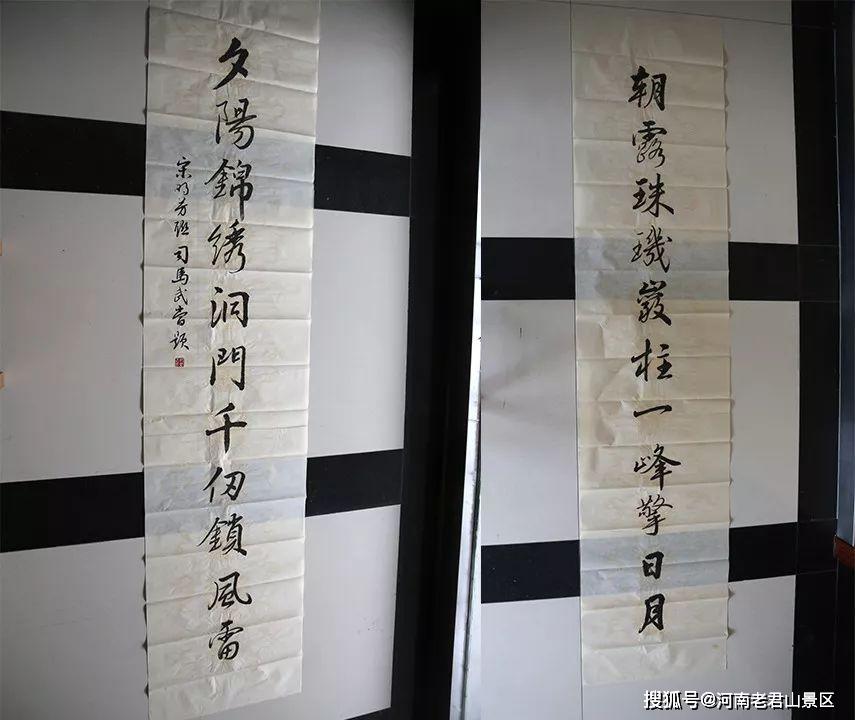 朝露珠璣巖柱一峰擎日月
夕陽錦绣洞門千仞鎖風雷
司馬武當題
搜狐号@河南老君山景区